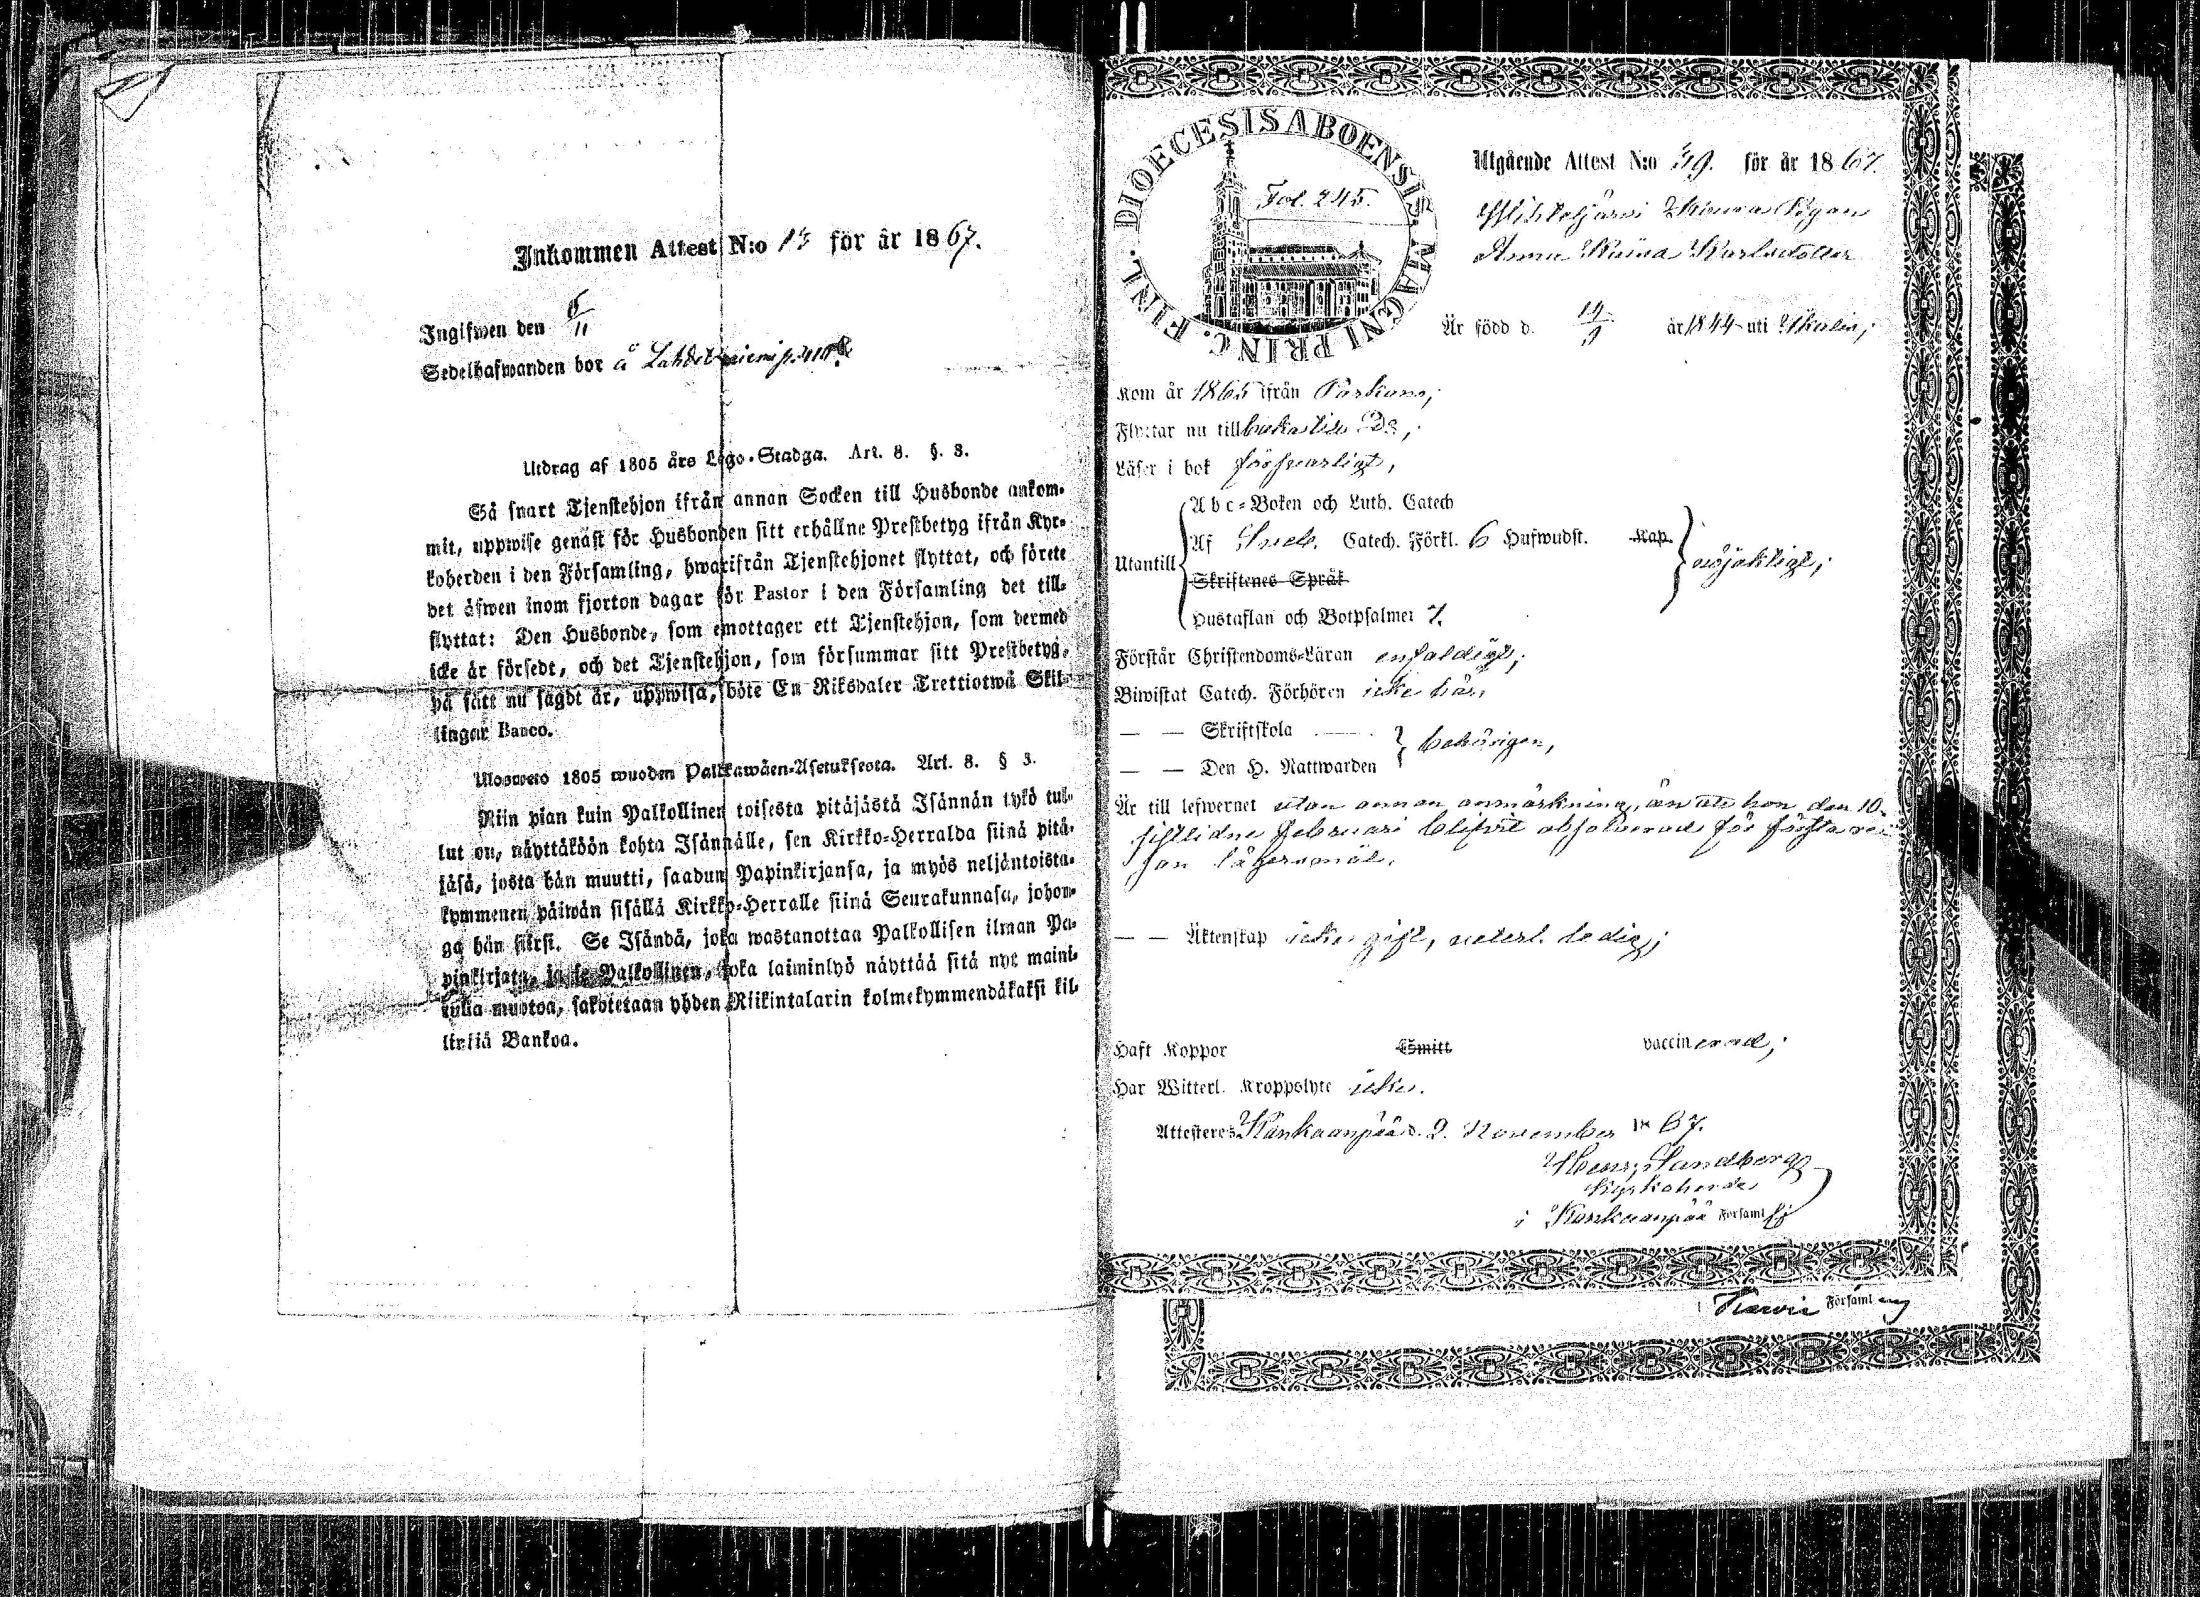 Inkommen Attest N:o 13 för år 1867.
Ingifwen den 6/11
Sedelhafwanden bor å Lahdenniemi p. 410
Utdrag af 1805 års Lego-Stadga. Art. 8. §. 3.
Så snart Tjenstehjon ifrån annan Socken till Husbonde ankom-
mit, uppwise genast för Husbonden sitt erhållne Prestbetyg ifrån Kyr-
koherden i den Församling, hwarifrån Tjenstehjonet flyttat, och förete
det äfwen inom fjorton dagar för Pastor i den Församling det till-
flyttat: Den Husbonde, som emottager ett Tjenstehjon, som dermed
icke är försedt, och det Tjenstehjon, som försummar sitt Prestbetyg,
på sätt nu sagdt är, uppwisa, böte En Riksdaler Trettiotwå Skil-
lingar Banco.
Ulosweto 1805 wuoden Palkkawäen-Asetuksesta. Art. 8. § 3.
Niin pian kuin Palkollinen toisesta pitäjästä Isännän tykö tul-
lut on, näyttäköön kohta Isännälle, sen Kirkko-Herralda siinä pitä-
jäsä, josta hän muutti, saadun Papinkirjansa, ja myös neljäntoista-
kymmenen päiwän sisällä Kirkko-Herralle siinä Seurakunnasa, johon-
ga hän siirsi. Se Isändä, joka wastanottaa Palkollisen ilman Pa-
pinkirjata, ja se Palkollinen, joka laiminlyö näyttää sitä nyt maini-
tulla muotoa, sakotetaan yhden Riikintalarin kolmekymmendäkaksi kil-
linkiä Bankoa.
DIOECESIS ABOENSIS. MAGNI PRINC. FINL.
Fol. 245.
Utgående Attest N:o 49. för år 1867.
Pigan
Anna Karlsdotter
Är född d. 19/9 år 1844 uti
Kom år 1865 ifrån Parkano;
Flyttar nu tillbaka till Do;
Läser i bok försvarligt,
Utantill
Abc-Boken och Luth. Catech
Af Sveb. Catech. Förkl. 6 Hufwudst. Kap.
Skriftenes Språk
nöjaktigt;
Hustaflan och Botpsalmer 7.
Förstår Christendoms-Läran enfaldigt;
Biwistat Catech. Förhören icke här,
— — Skriftskola
behörigen,
— — Den H. Nattwarden
Är till lefwernet utan annan anmärkning, än att hon den 10.
sistlidne Februari blifvit absolverad för första re-
san lägersmål.
— — Äktenskap icke gift, veterl. ledig;
Haft Koppor Esmitt vaccinerad;
Har Witterl. Kroppslyte icke.
Attesteres Kankaanpää d. 2. November 1867.
Henr. Sandberg
Kyrkoherde
i Kankaanpää Församl.
i Karvia Församling